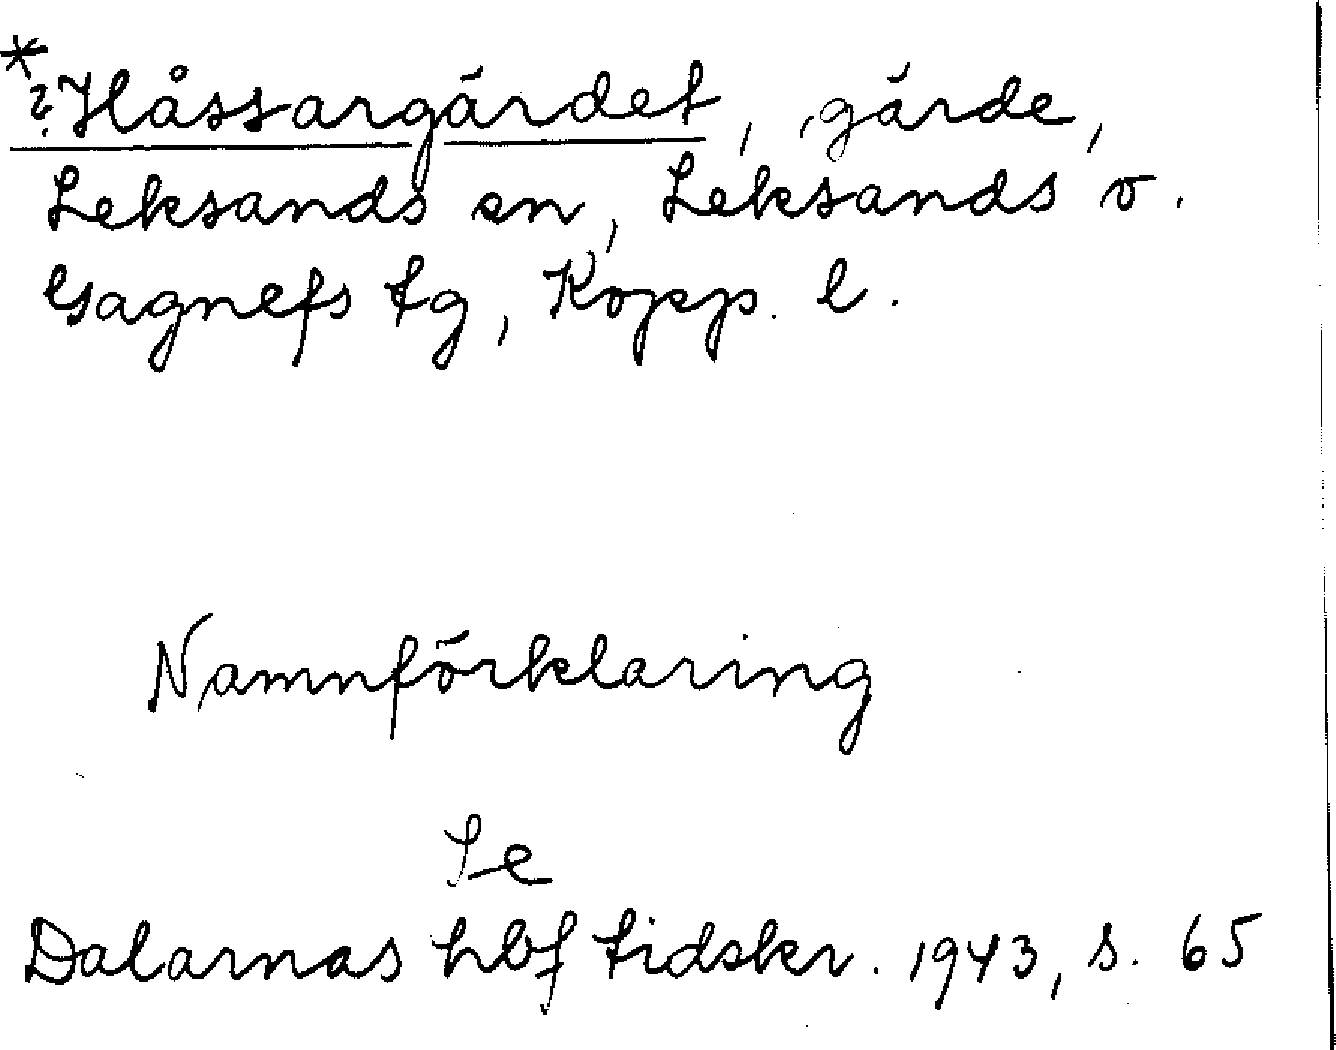 *?Håssargärdet, gärde,
Leksands sn, Leksands o.
Gagnefs tg, Kopp. l.
Namnförklaring
Se
Dalarnas hbf tidskr. 1943, s. 65